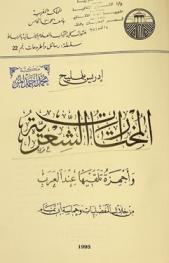 المملكة المغربية
جامعة محمد الخامس
منشورات كلية الآداب والعلوم الإنسانية بالرباط
سلسلة: رسائل وأطروحات رقم 22
إدريس بلمليح
المختارات الشعرية
وأجهزة تلقيها عند العرب
من خلال المفضليات وحماسة أبي تمام
1995